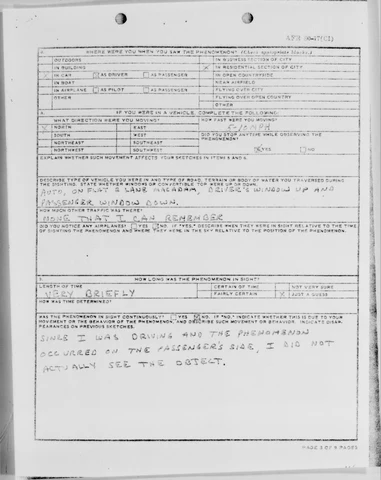 AFR 80-17(C1)
WHERE WERE YOU WHEN YOU SAW THE PHENOMENON? (Check appropriate blocks.)
OUTDOORS
IN BUSINESS SECTION OF CITY
IN BUILDING
X IN RESIDENTIAL SECTION OF CITY
X IN CAR AS DRIVER AS PASSENGER
IN OPEN COUNTRYSIDE
IN BOAT
NEAR AIRFIELD
IN AIRPLANE AS PILOT AS PASSENGER
FLYING OVER CITY
OTHER
FLYING OVER OPEN COUNTRY
OTHER
IF YOU WERE IN A VEHICLE, COMPLETE THE FOLLOWING:
WHAT DIRECTION WERE YOU MOVING?
HOW FAST WERE YOU MOVING?
X NORTH EAST
5-10 MPH
SOUTH WEST
DID YOU STOP ANYTIME WHILE OBSERVING THE PHENOMENON?
NORTHEAST SOUTHEAST
NORTHWEST SOUTHWEST
YES NO
EXPLAIN WHETHER SUCH MOVEMENT AFFECTS YOUR SKETCHES IN ITEMS 5 AND 6.
DESCRIBE TYPE OF VEHICLE YOU WERE IN AND TYPE OF ROAD, TERRAIN OR BODY OF WATER YOU TRAVERSED DURING
THE SIGHTING. STATE WHETHER WINDOWS OR CONVERTIBLE TOP WERE UP OR DOWN.
AUTO, ON FLAT 2 LANE MACADAM, DRIVER'S WINDOW UP AND
PASSENGER WINDOW DOWN.
HOW MUCH OTHER TRAFFIC WAS THERE?
NONE THAT I CAN REMEMBER
DID YOU NOTICE ANY AIRPLANES? YES NO. IF "YES," DESCRIBE WHEN THEY WERE IN SIGHT RELATIVE TO THE TIME
OF SIGHTING THE PHENOMENON AND WHERE THEY WERE IN THE SKY RELATIVE TO THE POSITION OF THE PHENOMENON.
HOW LONG WAS THE PHENOMENON IN SIGHT?
LENGTH OF TIME
CERTAIN OF TIME NOT VERY SURE
VERY BRIEFLY
FAIRLY CERTAIN X JUST A GUESS
HOW WAS TIME DETERMINED?
WAS THE PHENOMENON IN SIGHT CONTINUOUSLY? YES NO. IF "NO," INDICATE WHETHER THIS IS DUE TO YOUR
MOVEMENT OR THE BEHAVIOR OF THE PHENOMENON, AND DESCRIBE SUCH MOVEMENT OR BEHAVIOR. INDICATE DISAP-
PEARANCES ON PREVIOUS SKETCHES.
SINCE I WAS DRIVING AND THE PHENOMENON
OCCURRED ON THE PASSENGER'S SIDE, I DID NOT
ACTUALLY SEE THE OBJECT.